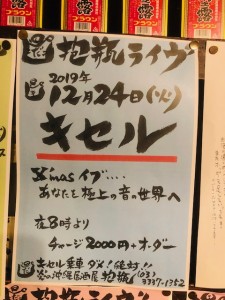 抱瓶ライヴ
2019年
12月24日(火)
キセル
X'masイブ....
あなたを極上の音の世界へ
夜8時より
チャージ2000円+オーダー
キセル乗車ダメ!絶対!!
沖縄居酒屋 抱瓶 (03)
3337-1352
抱瓶ライヴ
ブラウン
ブラウン